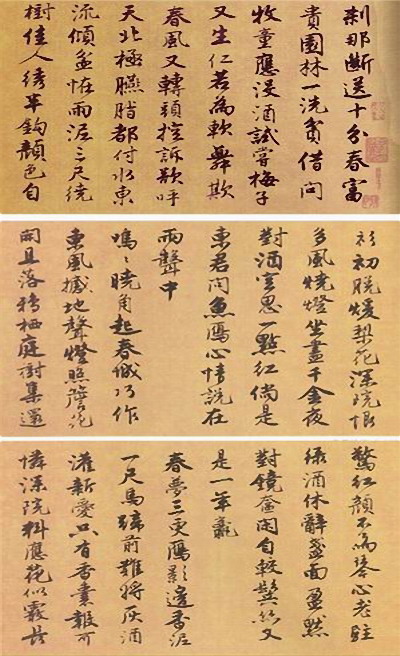 刹那斷送十分春富
貴園林一洗貧借问
牧童應没酒試嘗梅子
又生仁若為軟舞欺
春風又轉頭控訴欲呼
天北極臙脂都付水東
流傾盆怪雨泥三尺繞
樹佳人綉半鈎顏色自
衫初脱煖梨花深院恨
多風燒燈坐盡千金夜
對酒空思一點紅倘是
東君问魚鴈心情說在
雨聲中
嗚嗚曉角起春城巧作
東風撼地聲燈照簷花
開且落鴉栖庭樹集還
驚紅顏不為琴心老駐
綠酒休辭盞面盈默
對鏡奩閑自較鬢絲又
是一年
春夢三更鴈影邊香泥
一尺馬蹄前難將灰酒
灌新愛只有香囊報可
憐深院料應花似霰長